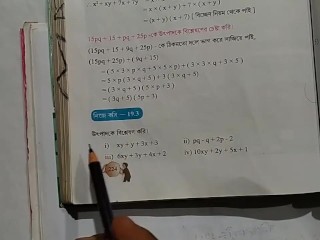 x² + xy + 7x + 7y = x × (x + y) + 7 × (x + y)
= (x + y) (x + 7) [ বিচ্ছেদ নিয়ম থেকে পাই ]
15pq + 15 + 9q + 25p কে উৎপাদকে বিশ্লেষণের চেষ্টা করি।
(15pq + 15 + 9q + 25p) -কে ঠিকমতো দলে ভাগ করে সাজিয়ে পাই,
(15pq + 25p) + (9q + 15)
= (5 × 3 × p × q + 5 × 5 × p) + (3 × 3 × q + 3 × 5)
= 5 × p (3 × q + 5) + 3 (3 × q + 5)
= (3 × q + 5) (5 × p + 3)
= (3q + 5) (5p + 3)
নিজে করি — 19.3
উৎপাদকে বিশ্লেষণ করি।
i) xy + y + 3x + 3 ii) pq - q + 2p - 2
iii) 6xy + 3y + 4x + 2 iv) 10xy + 2y + 5x + 1